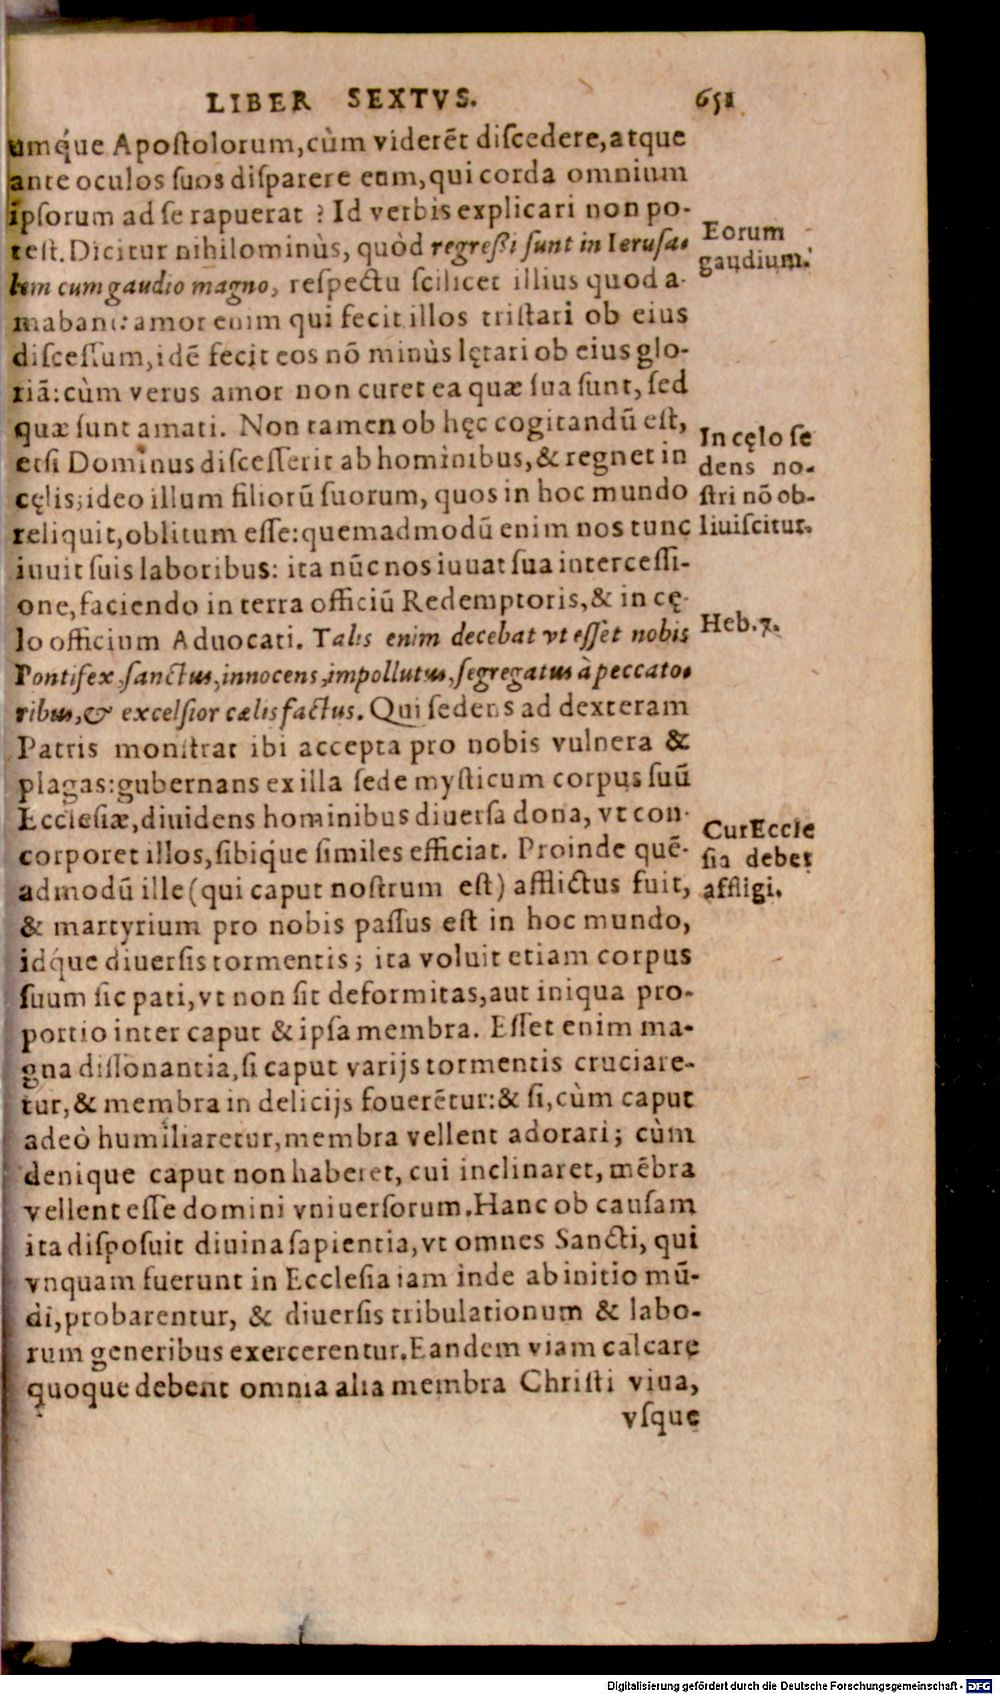 LIBER SEXTVS. 651
umq́ue Apostolorum, cùm viderẽt discedere, atque
ante oculos suos disparere eum, qui corda omnium
ipsorum ad se rapuerat? Id verbis explicari non po-
test. Dicitur nihilominùs, quòd regreßi sunt in Ierusa-
lem cum gaudio magno, respectu scilicet illius quod a-
mabant: amor enim qui fecit illos tristari ob eius
discessum, idẽ fecit eos nõ minùs lętari ob eius glo-
riã: cùm verus amor non curet ea quæ sua sunt, sed
quæ sunt amati. Non tamen ob hęc cogitandũ est,
etsi Dominus discesserit ab hominibus, & regnet in
cęlis; ideo illum filiorũ suorum, quos in hoc mundo
reliquit, oblitum esse: quemadmodũ enim nos tunc
iuuit suis laboribus: ita nũc nos iuuat sua intercessi-
one, faciendo in terra officiũ Redemptoris, & in cę-
lo officium Aduocati. Talis enim decebat vt esset nobis
Pontifex, sanctus, innocens, impollutus, segregatus à peccato-
ribus, & excelsior cælis factus. Qui sedens ad dexteram
Patris monstrat ibi accepta pro nobis vulnera &
plagas: gubernans ex illa sede mysticum corpus suũ
Ecclesiæ, diuidens hominibus diuersa dona, vt con-
corporet illos, sibiq́ue similes efficiat. Proinde quẽ-
admodũ ille (qui caput nostrum est) afflictus fuit,
& martyrium pro nobis passus est in hoc mundo,
idq́ue diuersis tormentis; ita voluit etiam corpus
suum sic pati, vt non sit deformitas, aut iniqua pro-
portio inter caput & ipsa membra. Esset enim ma-
gna dissonantia, si caput varijs tormentis cruciare-
tur, & membra in delicijs fouerẽtur: & si, cùm caput
adeò humiliaretur, membra vellent adorari; cùm
denique caput non haberet, cui inclinaret, mẽbra
vellent esse domini vniuersorum. Hanc ob causam
ita disposuit diuina sapientia, vt omnes Sancti, qui
vnquam fuerunt in Ecclesia iam inde ab initio mũ-
di, probarentur, & diuersis tribulationum & labo-
rum generibus exercerentur. Eandem viam calcare
quoque debent omnia alia membra Christi viua,
vsque
Eorum
gaudium.
In cęlo se
dens no-
stri nõ ob-
liuiscitur.
Heb. 7.
Cur Eccle
sia debet
affligi.
Digitalisierung gefördert durch die Deutsche Forschungsgemeinschaft - DFG